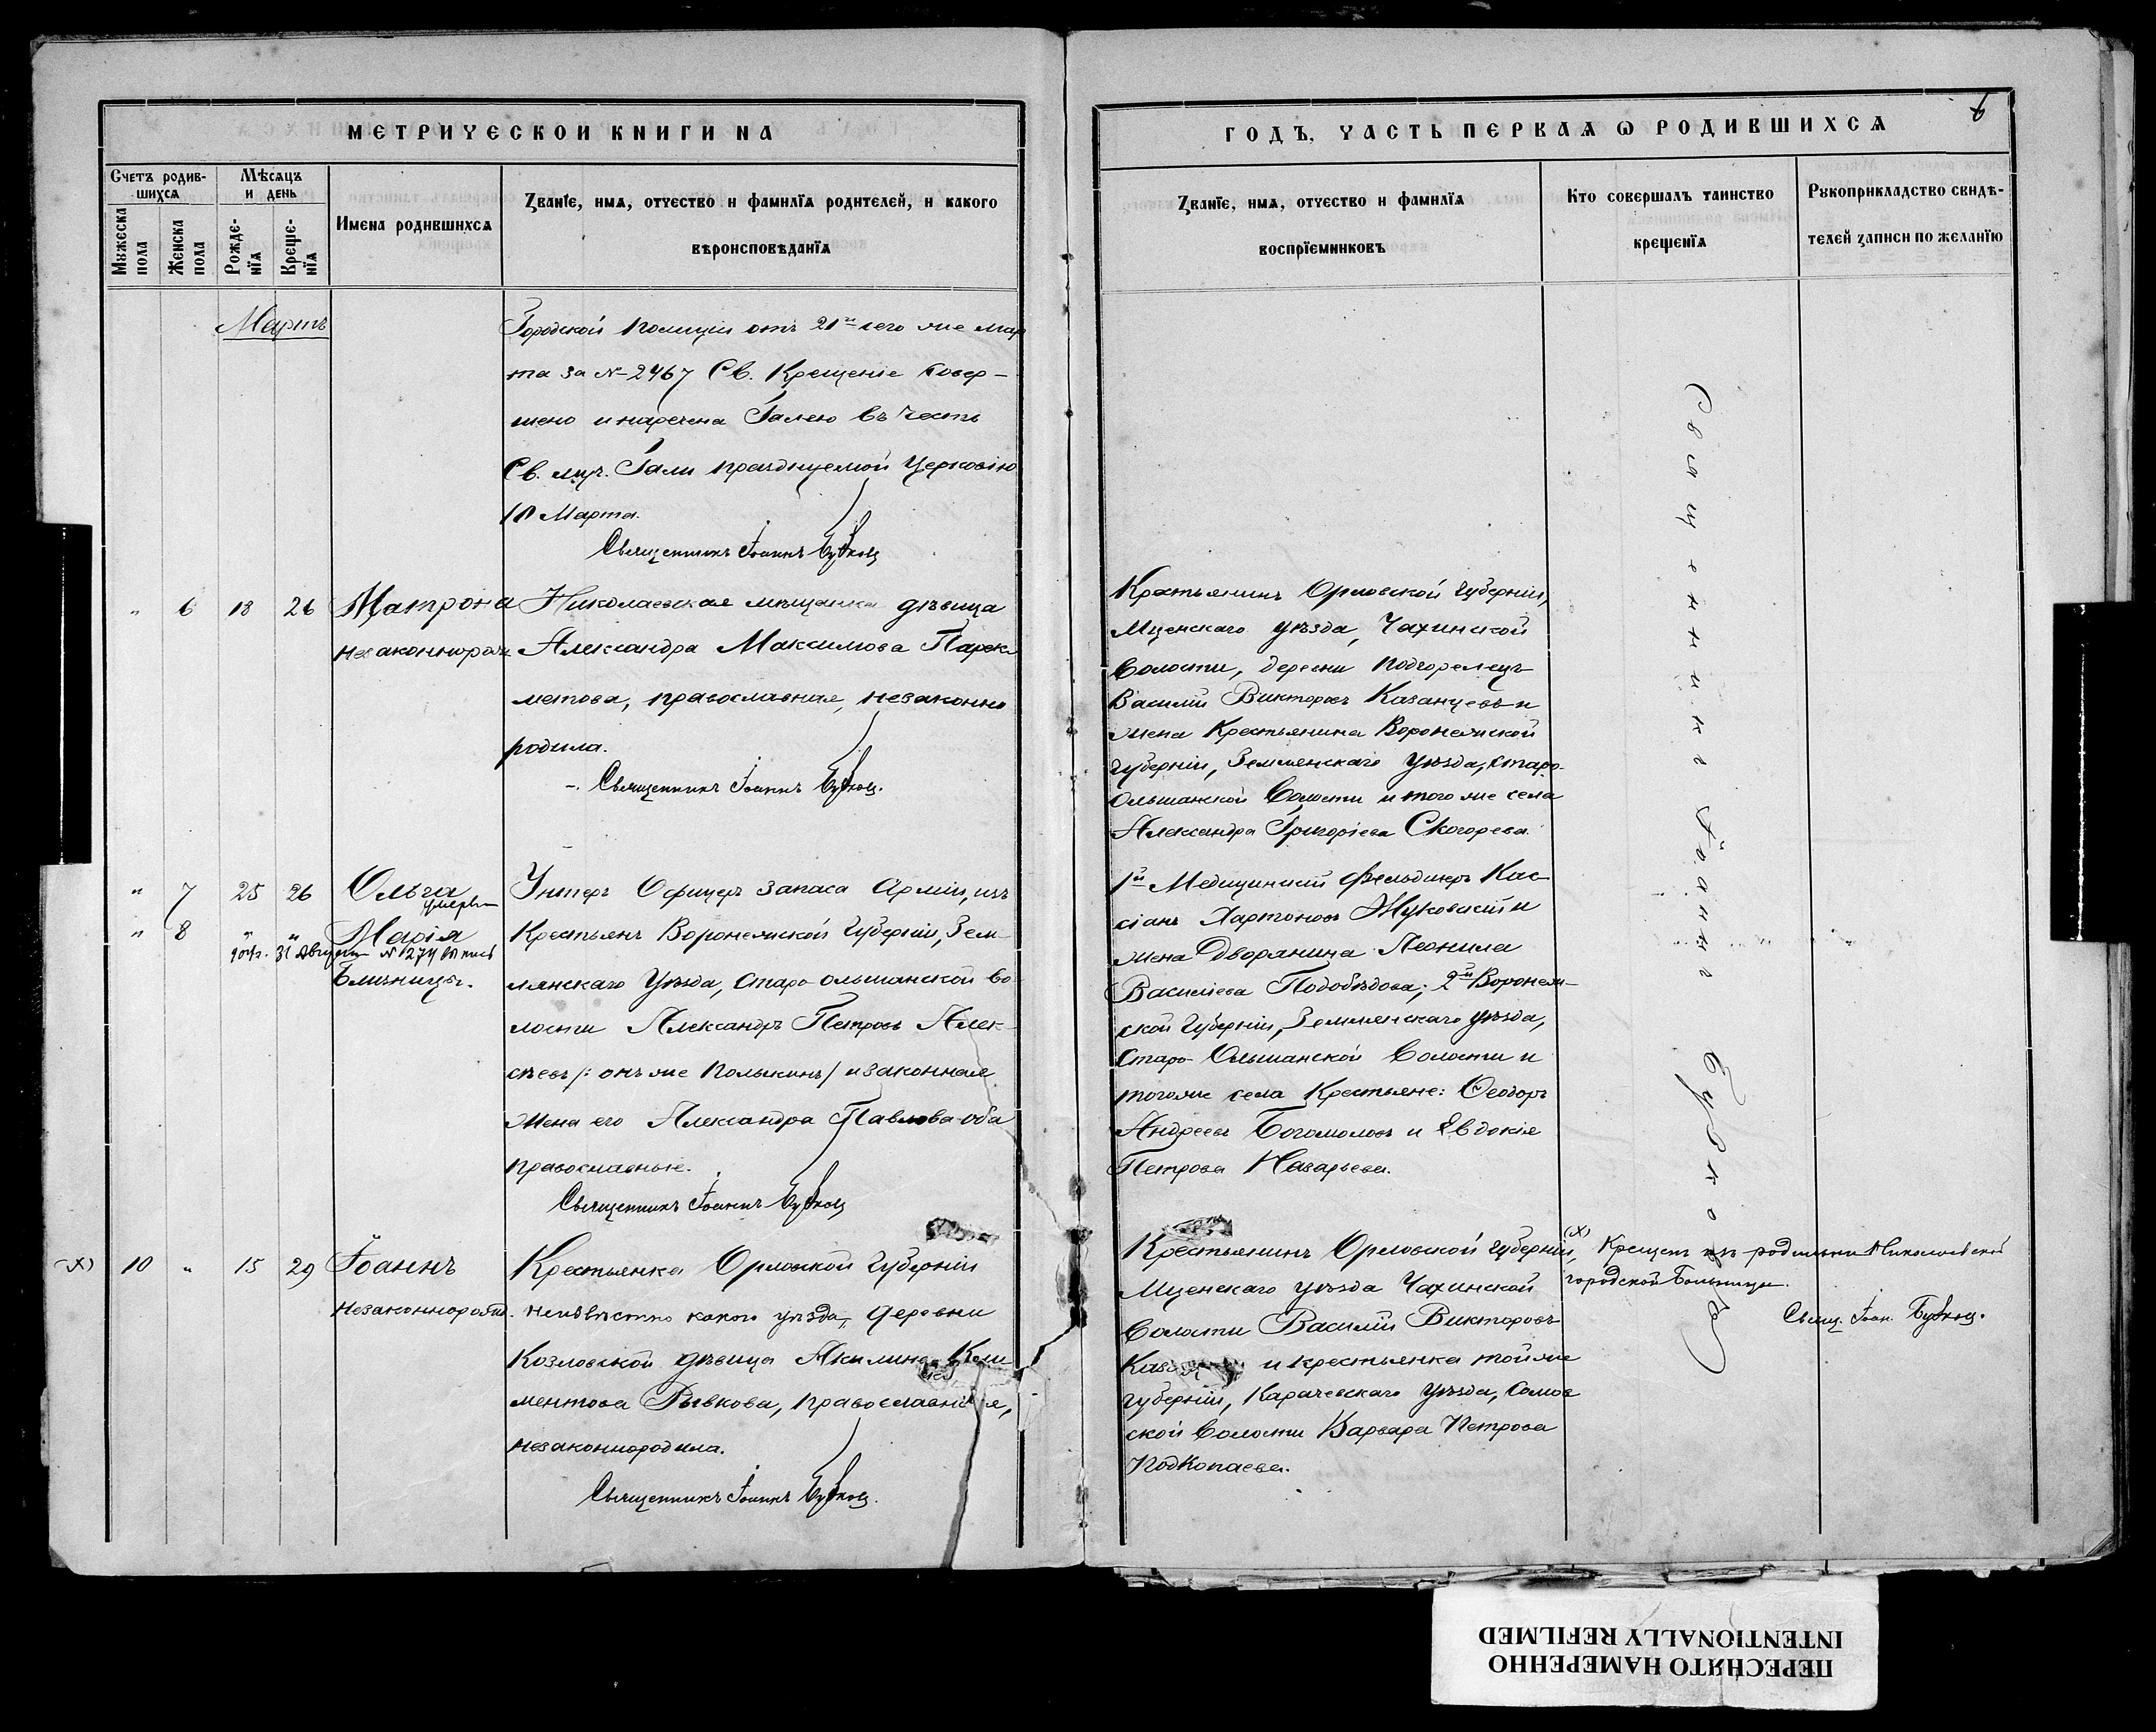 МЕТРИЧЕСКОЙ КНИГИ НА
Счетъ родив-
шихся
Мѣсяцъ
и день
Мужеска
пола
Женска
пола
Рожде-
нїя
Креще-
нїя
Имена родившихся
Званїе, имя, отчество и фамилїя родителей, и какого
вѣроисповѣданїя
Мартъ
Городской Полиціи отъ 21го сего же мар
та за №2467 Св. Крещеніе Совер-
шено и наречена Галею въ честь
Св. муч. Гали празднуемой Церковію
10 Марта.
Священникъ Іоаннъ
" 6 18 26 Матрона
незаконнорож
Николаевская мѣщанка дѣвица
Александра Максимова
метова, православная, незаконно
родила.
Священникъ Іоаннъ
" 7 25 26 Ольга
умерла
" 8 " " Марія
904г. 31 Августа №1274
Близницы.
Унтеръ Офицеръ запаса Арміи, изъ
Крестьянъ Воронежской Губерніи, Зем-
лянскаго Уѣзда, Старо-Ольшанской во-
лости Александръ Петровъ Алек-
сѣевъ /: онъ же Полыкинъ/ и законная
жена его Александра Павлова оба
православные.
Священникъ Іоаннъ
(Х) 10 " 15 29 Іоаннъ
незаконнорожд.
Крестьянка Орловской Губерніи
неизвѣстно какого уѣзда, деревни
Козловской дѣвица Акилина Кли
ментова Рывкова, православная,
незаконнородила.
Священникъ Іоаннъ
ГОДЪ, ЧАСТЬ ПЕРВАЯ Ѡ РОДИВШИХСЯ
6
Званїе, имя, отчество и фамилїя
воспрїемниковъ
Кто совершалъ таинство
крещенїя
Рукоприкладство свидѣ-
телей записи по желанїю
Крестьянинъ Орловской Губерніи,
Мценскаго уѣзда, Чахинской
Волости, деревни Подгорелецъ
Василій Викторовъ Казанцевъ и
жена Крестьянина Воронежской
Губерніи, Землянскаго Уѣзда, Старо-
Ольшанской Волости и того же села
Александра Григоріева Скогорева.
1й Медицинскій Фельдшеръ Кас-
сіанъ Харитоновъ Жуковскій и
жена Дворянина Леонила
Василіева Подобѣдова; 2й Воронеж-
ской Губерніи, Землянскаго уѣзда,
Старо-Ольшанской Волости и
тогоже села Крестьяне: Ѳеодоръ
Андреевъ Богомоловъ и Евдокія
Петрова Назарьева.
Крестьянинъ Орловской Губерніи,
Мценскаго уѣзда Чахинской
Волости Василій Викторовъ
и крестьянка той же
Губерніи, Карачевскаго Уѣзда,
ской Волости Варвара Петрова
Подкопаева.
Священникъ Іоаннъ
(Х) Крещенъ изъ родильни Николаевской
городской Больницы.
Свящ. Іоан.
ПЕРЕСНЯТО НАМЕРЕННО
INTENTIONALLY REFILMED